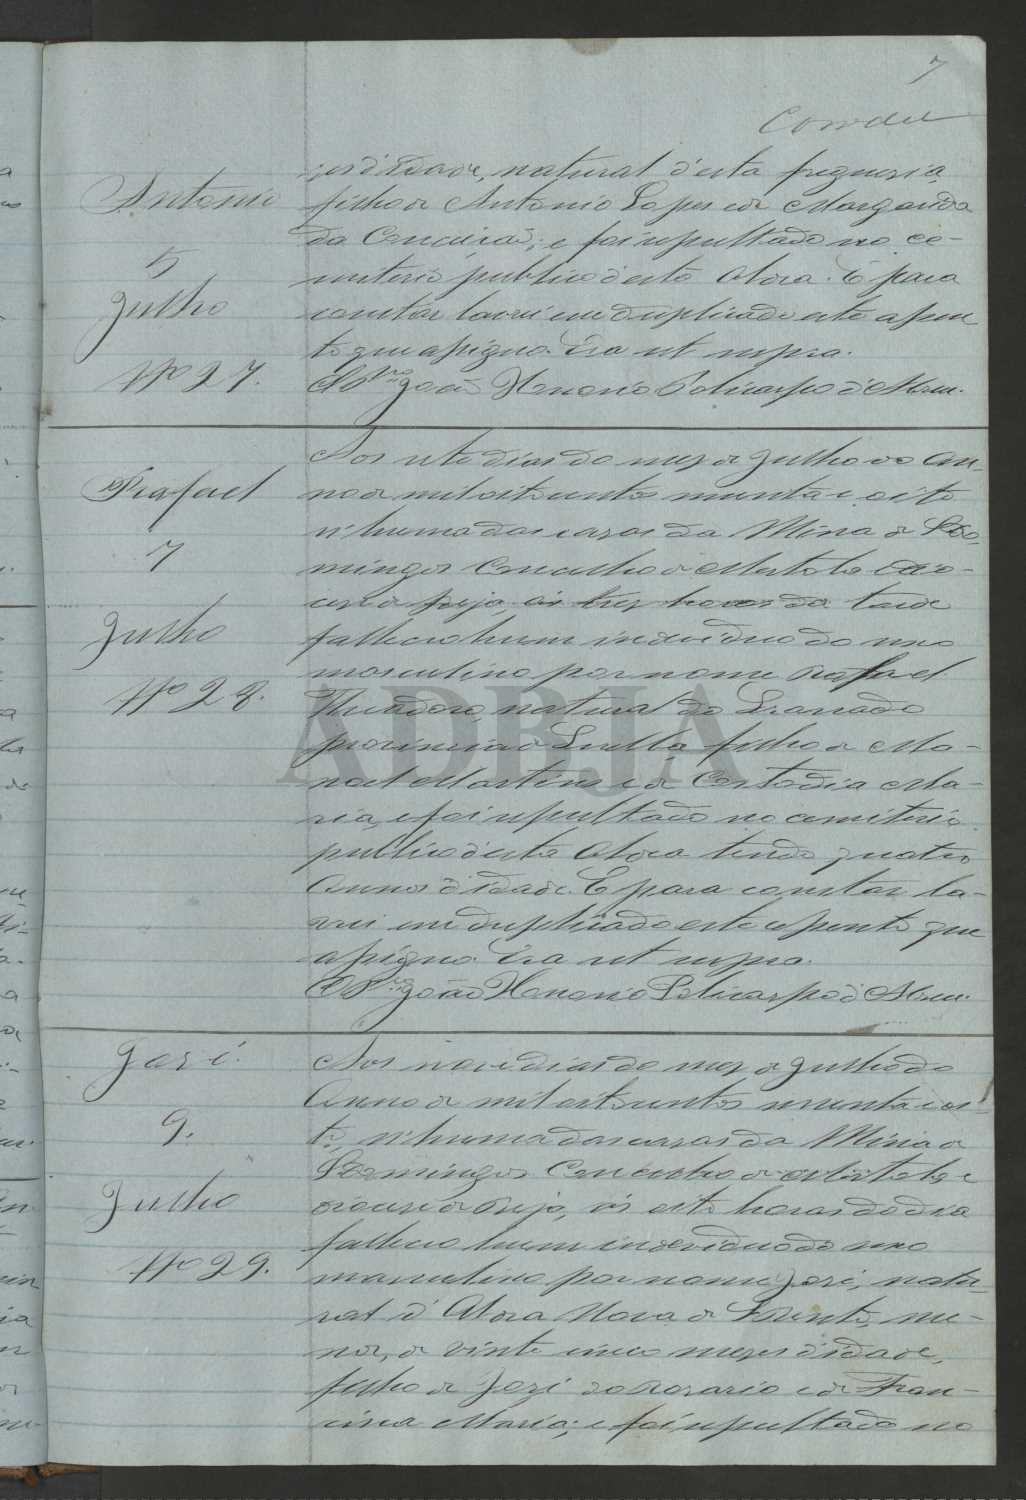 7
Antonio
5
Julho
Nº 27.
d'idade, natural d'esta freguesia,
filho de Antonio Lopes e de Margarida
da Conceição; e foi sepultado no ce-
miterio publico d'esta Aldea. E para
constar lavrei em duplicado este assen-
to que assigno. Era ut supra.
O Pro João Honorio Policarpo d'Abreu.
Rafael
7
Julho
Nº 28.
Aos sete dias do mez de Julho do an-
no de mil oitocentos sessenta e oito
n'huma das casas da Mina de S. Do-
mingos Concelho de Mertola Dio-
cese de Beja, ás tres horas da tarde
falleceo hum individuo do sexo
masculino por nome Rafael
Theodoro, natural do Granado
provincia de Sevilla filho de Ma-
noel Martins e de Custodia Ma-
ria, e foi sepultado no cemiterio
publico d'esta Aldea tendo quatro
annos d'idade. E para constar la-
vrei em duplicado este assento que
assigno. Era ut supra.
O Pro João Honorio Policarpo d'Abreu.
José
9.
Julho
Nº 29.
Aos nove dias do mez de Julho do
anno de mil oitocentos sessenta e oi-
to, n'huma das casas da Mina de
S. Domingos Concelho de Mertola e
diocese de Beja, ás oito horas do dia
falleceo hum individuo do sexo
masculino por nome José, natu-
ral d'Aldea Nova de S. Bento, me-
nor, de vinte cinco mezes d'idade,
filho de José do Rosario e de Fran-
cisca Maria; e foi sepultado no
ADBJA